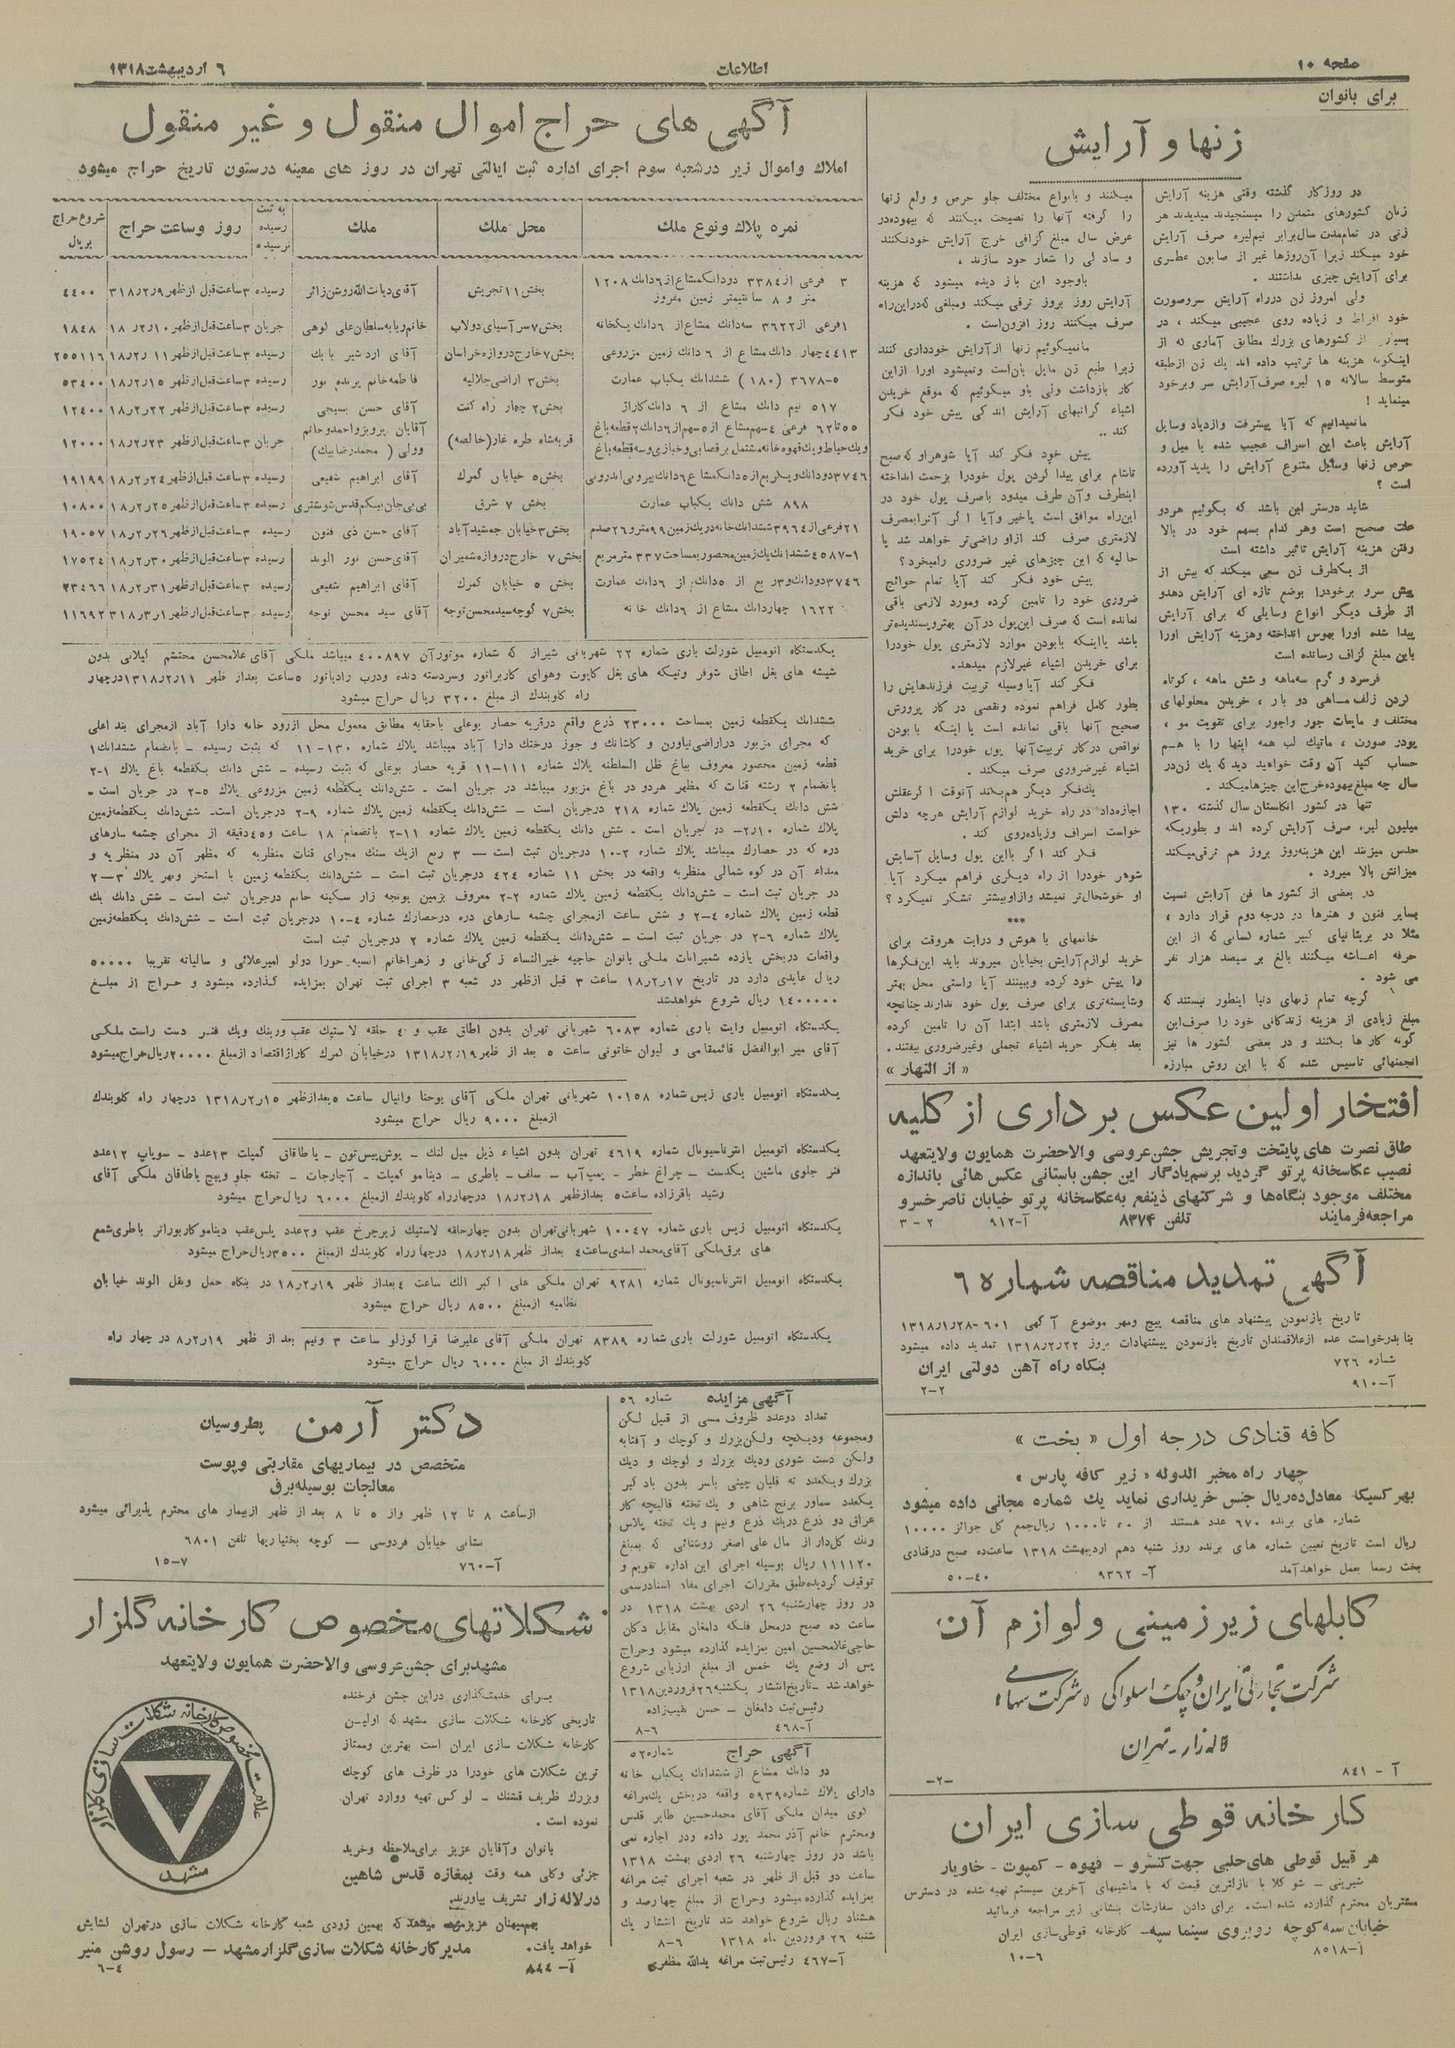 صفحه ۱۰
اطلاعات
۶ اردیبهشت ۱۳۱۸
برای بانوان
زنها و آرایش
در روزگار گذشته وقتی هزینه آرایش
زنان کشورهای متمدن را میسنجیدند میدیدند هر
زنی در تمام مدت سال برابر نیم لیره صرف آرایش
خود میکند زیرا آن روزها غیر از صابون عطری
برای آرایش چیزی نداشتند.
ولی امروز زن در راه آرایش سر و صورت
خود افراط و زیاده روی عجیبی میکند، در
بسیاری از کشورهای بزرگ مطابق آماری که از
اینگونه هزینه ها ترتیب داده اند یک زن از طبقه
متوسط سالانه ۱۵ لیره صرف آرایش سر و بر خود
مینماید!
ما نمیدانیم که آیا پیشرفت و ازدیاد وسایل
آرایش باعث این اسراف عجیب شده یا میل و
حرص زنها وسایل متنوع آرایش را پدید آورده
است ؟
شاید درستتر این باشد که بگوئیم هر دو
علت صحیح است و هر کدام بسهم خود در بالا
رفتن هزینه آرایش تاثیر داشته است
از یکطرف زن سعی میکند که بیش از
پیش سر و بر خود را بوضع تازه ای آرایش دهد و
از طرف دیگر انواع وسایلی که برای آرایش
پیدا شده او را بهوس انداخته و هزینه آرایش او را
باین مبلغ گزاف رسانده است
فرسرد و گرم سه ماهه و شش ماهه، کوتاه
کردن زلف ماهی دو بار، خریدن محلولهای
مختلف و مایعات جور واجور برای تقویت مو،
پودر صورت، ماتیک لب همه اینها را با هم
حساب کنید آن وقت خواهید دید که یک زن در
سال چه مبلغ بیهوده خرج این چیزها میکند.
تنها در کشور انگلستان سال گذشته ۱۳۰
میلیون لیره صرف آرایش کرده اند و بطوریکه
حدس میزنند این هزینه روز بروز هم ترقی میکند
میزانش بالا میرود.
در بعضی از کشور ها فن آرایش نسبت
بسایر فنون و هنرها در درجه دوم قرار دارد،
مثلا در بریتانیای کبیر شماره کسانی که از این
حرفه اعاشه میکنند بالغ بر سیصد هزار نفر
می شود.
گرچه تمام زنهای دنیا اینطور نیستند که
مبلغ زیادی از هزینه زندگانی خود را صرف این
گونه کار ها بکنند و در بعضی کشور ها نیز
انجمنهائی تاسیس شده که با این روش مبارزه
میکنند و بانواع مختلف جلو حرص و ولع زنها
را گرفته آنها را نصیحت میکنند که بیهوده در
عرض سال مبلغ گزافی خرج آرایش خود نکنند
و سادگی را شعار خود سازند،
باوجود این باز دیده میشود که هزینه
آرایش روز بروز ترقی میکند و مبلغی که در این راه
صرف میکنند روز افزون است.
ما نمیگوئیم زنها از آرایش خودداری کنند
زیرا طبع زن مایل بآن است و نمیشود او را از این
کار بازداشت ولی باو میگوئیم که موقع خریدن
اشیاء گرانبهای آرایش اندکی پیش خود فکر
کند ..
پیش خود فکر کند آیا شوهر او که صبح
تا شام برای پیدا کردن پول خود را بزحمت انداخته
اینطرف و آن طرف میدود با صرف پول خود در
این راه موافق است یا خیر و آیا اگر آنرا بمصرف
لازمتری صرف کند از او راضی تر خواهد شد یا
حالیه که این چیزهای غیر ضروری را میخرد؟
پیش خود فکر کند آیا تمام حوائج
ضروری خود را تامین کرده و مورد لازمی باقی
نمانده است که صرف این پول در آن بهتر و پسندیده تر
باشد یا اینکه با بودن موارد لازمتری پول خود را
برای خریدن اشیاء غیر لازم میدهد.
فکر کند آیا وسیله تربیت فرزندهایش را
بطور کامل فراهم نموده و نقصی در کار پرورش
صحیح آنها باقی نمانده است یا اینکه با بودن
نواقص در کار تربیت آنها پول خود را برای خرید
اشیاء غیر ضروری صرف میکند.
یک فکر دیگر هم بکند آنوقت اگر عقلش
اجازه داد در راه خرید لوازم آرایش هرچه دلش
خواست اسراف و زیاده روی کند.
فکر کند اگر با این پول وسایل آسایش
شوهر خود را از راه دیگری فراهم میکرد آیا
او خوشحال تر نمیشد و از او بیشتر تشکر نمیکرد ؟
***
خانمهای با هوش و درایت هروقت برای
خرید لوازم آرایش بخیابان میروند باید این فکرها
را پیش خود کرده و ببینند آیا راستی محل بهتر
و شایسته تری برای صرف پول خود ندارند چنانچه
مصرف لازمتری باشد ابتدا آن را تامین کرده
بعد بفکر خرید اشیاء تجملی و غیر ضروری بیفتند.
« از النهار »
افتخار اولین عکس برداری از کلیه
طاق نصرت های پایتخت و تجریش جشن عروسی والاحضرت همایون ولایتعهد
نصیب عکاسخانه پرتو گردید برسم یادگار این جشن باستانی عکس هائی باندازه
مختلف موجود بنگاه ها و شرکتهای ذینفع به عکاسخانه پرتو خیابان ناصر خسرو
مراجعه فرمایند تلفن ۸۳۷۴ آ-۹۱۲ ۲ - ۳
آگهی تمدید مناقصه شماره ۶
تاریخ بازنمودن پیشنهاد های مناقصه پیچ و مهر موضوع آگهی ۶۰۱-۱۳۱۸/۱/۲۸
بنا بدرخواست عده از علاقمندان تاریخ بازنمودن پیشنهادات بروز ۱۳۱۸/۲/۲۲ تمدید داده میشود
شماره ۷۲۶ بنگاه راه آهن دولتی ایران
آ-۹۱۰ ۲-۲
کافه قنادی درجه اول « بخت »
چهار راه مخبر الدوله « زیر کافه پارس »
بهر کسیکه معادل ده ریال جنس خریداری نماید یک شماره مجانی داده میشود
شماره های برنده ۶۷۰ عدد هستند از ۲۰ تا ۱۰۰۰ ریال جمع کل جوائز ۱۰۰۰۰
ریال است تاریخ تعیین شماره های برنده روز شنبه دهم اردیبهشت ۱۳۱۸ ساعت ده صبح در قنادی
بخت رسما بعمل خواهد آمد آ- ۹۳۶۲ ۴۰-۵۰
کابلهای زیرزمینی و لوازم آن
شرکت تجارتی ایران و چک اسلواکی «شرکت سهامی»
لاله زار - تهران
آ - ۸۴۱ -۲-
کارخانه قوطی سازی ایران
هر قبیل قوطی های حلبی جهت کنسرو - قهوه - کمپوت - خاویار
شیرینی - شوکلا با نازلترین قیمت که با ماشینهای آخرین سیستم تهیه شده در دسترس
مشتریان محترم گذارده شده است. برای دادن سفارشات بنشانی زیر مراجعه فرمائید
خیابان سپه کوچه روبروی سینما سپه - کارخانه قوطی سازی ایران
آ-۸۵۱۸ ۶-۱۰
آگهی های حراج اموال منقول و غیر منقول
املاک و اموال زیر در شعبه سوم اجرای اداره ثبت ایالتی تهران در روز های معینه درستون تاریخ حراج میشود
نمره پلاک و نوع ملک | محل ملک | ملک | به ثبت رسیده نرسیده | روز و ساعت حراج | شروع حراج بریال
۳ فرعی از ۳۳۸۴ دو دانگ مشاع از ۶ دانگ ۱۲۰۸ متر و ۸ سانتیمتر زمین مفروز | بخش ۱۱ تجریش | آقای دیانت الله روشن زائر | رسیده | ۳ ساعت قبل از ظهر ۳۱۸/۲/۹ | ۴۴۰۰
۱ فرعی از ۳۶۲۲ سه دانگ مشاع از ۶ دانگ یکخانه | بخش ۷ سر آسیای دولاب | خانم ربابه سلطان علی لوهی | جریان | ۳ ساعت قبل از ظهر ۱۸/۲/۱۰ | ۱۸۴۸
۴۴۱۳ چهار دانگ مشاع از ۶ دانگ زمین مزروعی | بخش ۷ خارج دروازه خراسان | آقای اردشیر بابک | رسیده | ۳ ساعت قبل از ظهر ۱۸/۲/۱۱ | ۲۵۵۱۱۶
۵-۳۶۷۸ (۱۸۰) ششدانگ یکباب عمارت | بخش ۳ اراضی جلالیه | فاطمه خانم پرنده نور | رسیده | ۳ ساعت قبل از ظهر ۱۸/۲/۱۵ | ۵۳۴۰۰
۵۱۷ نیم دانگ مشاع از ۶ دانگ کاراژ | بخش ۲ چهار راه کنت | آقای حسن بسیجی | رسیده | ۳ ساعت قبل از ظهر ۱۸/۲/۲۲ | ۱۲۴۰۰
۵۵ تا ۶۲ فرعی ۴ سهم مشاع از ۵ سهم از ۶ دانگ ۲ قطعه باغ و یک حیاط و یک قهوه خانه مشتمل بر قصابی و خبازی و سه قطعه باغ | قریه شاه طره غار (خالصه) | آقایان پرویز و احمد و خانم و ولی (محمد رضا بیک) | جریان | ۳ ساعت قبل از ظهر ۱۸/۲/۲۳ | ۱۲۰۰۰
۳۷۴۶ دو دانگ و یکربع از ۵ دانگ مشاع ۶ دانگ بیرونی اندرونی | بخش ۵ خیابان گمرک | آقای ابراهیم شفیعی | رسیده | ۳ ساعت قبل از ظهر ۱۸/۲/۲۴ | ۱۹۱۹۹
۸۹۸ شش دانگ یکباب عمارت | بخش ۷ شرق | بی بی جان بیگم قدس شوشتری | رسیده | ۳ ساعت قبل از ظهر ۱۸/۲/۲۵ | ۱۰۸۰۰
۲۱ فرعی از ۳۹۶۴ ششدانگ خانه در یک زمین ۹۹ متر و ۲۶ صدم | بخش ۳ خیابان جمشید آباد | آقای حسن ذی فنون | رسیده | ۳ ساعت قبل از ظهر ۱۸/۲/۲۶ | ۱۹۰۵۷
۱-۴۵۸۷ ششدانگ یک زمین محصور بمساحت ۳۳۷ متر مربع | بخش ۷ خارج دروازه شمیران | آقای حسن نور الوند | رسیده | ۳ ساعت قبل از ظهر ۱۸/۲/۳۰ | ۱۷۵۲۴
۳۷۴۶ دو دانگ و ۳ ربع از ۵ دانگ از ۶ دانگ عمارت | بخش ۵ خیابان گمرک | آقای ابراهیم شفیعی | رسیده | ۳ ساعت قبل از ظهر ۱۸/۲/۳۱ | ۲۳۴۶۶
۱۶۲۲ چهار دانگ مشاع از ۶ دانگ خانه | بخش ۷ کوچه سید محسن توجه | آقای سید محسن توجه | رسیده | ۳ ساعت قبل از ظهر ۳۱۸/۳/۱ | ۱۱۶۹۲
یکدستگاه اتومبیل شورلت باری شماره ۲۲ شهربانی شیراز که شماره موتور آن ۴۰۰۸۹۷ میباشد ملکی آقای غلامحسن محتشم گیلانی بدون
شیشه های بغل اطاق شوفر و تیکه های بغل کاپوت و هوای کاربراتور و سردسته دنده و درب رادیاتور ۵ ساعت بعد از ظهر ۱۳۱۸/۲/۱۱ در چهار
راه کلوبندک از مبلغ ۳۲۰۰ ریال حراج میشود
ششدانگ یکقطعه زمین بمساحت ۲۳۰۰۰ ذرع واقع در قریه حصار بوعلی باحقابه مطابق معمول محل از رود خانه دارا آباد از مجرای بند اعلی
که مجرای مزبور در اراضی نیاورن و کاشانک و جوز درختک دارا آباد میباشد پلاک شماره ۱۳۰-۱۱ که بثبت رسیده - بانضمام ششدانگ ۱
قطعه زمین محصور معروف بباغ ظل السلطنه پلاک شماره ۱۱۱-۱۱ قریه حصار بوعلی که بثبت رسیده - شش دانگ یکقطعه باغ پلاک ۱-۲
بانضمام ۲ رشته قنات که مظهر هردو در باغ مزبور میباشد در جریان است - شش دانگ یکقطعه زمین مزروعی پلاک ۵-۲ در جریان است -
شش دانگ یکقطعه زمین پلاک شماره ۲۱۸ در جریان است - شش دانگ یکقطعه زمین پلاک شماره ۹-۲ در جریان است. شش دانگ یکقطعه زمین
پلاک شماره ۲/۱۰ - در جریان است - شش دانگ یکقطعه زمین پلاک شماره ۱۱-۲ بانضمام ۱۸ ساعت و ۴۵ دقیقه از مجرای چشمه سارهای
دره که در حصارک میباشد پلاک شماره ۲-۱۰ در جریان ثبت است - ۳ ربع از یک سنگ مجرای قنات منظریه که مظهر آن در منظریه و
مبداء آن در کوه شمالی منظریه واقعه در بخش ۱۱ شماره ۴۲۴ در جریان ثبت است - شش دانگ یکقطعه زمین با استخر و نهر پلاک ۳-۲
در جریان ثبت است - شش دانگ یکقطعه زمین پلاک شماره ۲-۲ معروف بزمین یونجه زار سکینه خانم در جریان ثبت است - شش دانگ یک
قطعه زمین پلاک شماره ۴-۲ و شش ساعت از مجرای چشمه سارهای دره در حصارک شماره ۴-۱۰ در جریان ثبت است - شش دانگ یکقطعه زمین
پلاک شماره ۶-۲ در جریان ثبت است - شش دانگ یکقطعه زمین پلاک شماره ۲ در جریان ثبت است
واقعات در بخش یازده شمیرانات ملکی بانوان حاجیه خیر النساء زکی خانی و زهرا خانم انسیه حورا دولو امیر علائی و سالیانه تقریبا ۵۰۰۰۰
ریال عایدی دارد در تاریخ ۱۸/۲/۱۷ ساعت ۳ قبل از ظهر در شعبه ۳ اجرای ثبت تهران بمزایده گذارده میشود و حراج از مبلغ
۱۴۰۰۰۰۰ ریال شروع خواهد شد
یکدستگاه اتومبیل وایت باری شماره ۶۰۸۳ شهربانی تهران بدون اطاق عقب و ۴ حلقه لاستیک عقب و رینگ و یک فنر دست راست ملکی
آقای میر ابوالفضل قائممقامی و لیوان خاتونی ساعت ۵ بعد از ظهر ۱۳۱۸/۲/۱۹ در خیابان گمرک کاراژ اقتصاد از مبلغ ۲۰۰۰۰ ریال حراج میشود
یکدستگاه اتومبیل باری زیس شماره ۱۰۱۵۸ شهربانی تهران ملکی آقای یوحنا وانیال ساعت ۵ بعد از ظهر ۱۳۱۸/۲/۱۵ در چهار راه کلوبندک
از مبلغ ۹۰۰۰ ریال حراج میشود
یکدستگاه اتومبیل انترناسیونال شماره ۴۶۱۹ تهران بدون اشیاء ذیل میل لنگ - بوش پیستون - یاطاقانی کمپلت ۱۳ عدد - سوپاپ ۱۲ عدد
فنر جلوی ماشین یکدست - چراغ خطر - پمپ آب - سلف - باطری - دینامو کمپلت - آچارجات - تخته جلو و پیچ یاطاقان ملکی آقای
رشید باقرزاده ساعت ۵ بعد از ظهر ۱۸/۲/۱۸ در چهار راه کلوبندک از مبلغ ۶۰۰۰ ریال حراج میشود
یکدستگاه اتومبیل زیس باری شماره ۱۰۰۴۷ شهربانی تهران بدون چهار حلقه لاستیک زیر چرخ عقب و ۲ عدد پلس عقب دینامو کاربوراتر باطری شمع
های برق ملکی آقای محمد اسدی ساعت ۴ بعد از ظهر ۱۸/۲/۱۸ در چهار راه کلوبندک از مبلغ ۳۵۰۰ ریال حراج میشود
یکدستگاه اتومبیل انترناسیونال شماره ۹۲۸۱ تهران ملکی علی اکبر الک ساعت ۴ بعد از ظهر ۱۸/۲/۱۹ در بنگاه حمل و نقل الوند خیابان
نظامیه از مبلغ ۸۵۰۰ ریال حراج میشود
یکدستگاه اتومبیل شورلت باری شماره ۸۳۸۹ تهران ملکی آقای علیرضا قراگوزلو ساعت ۳ ونیم بعد از ظهر ۸/۲/۱۹ در چهار راه
کلوبندک از مبلغ ۶۰۰۰ ریال حراج میشود
آگهی مزایده شماره ۵۶
تعداد دو عدد ظروف مسی از قبیل لگن
و مجموعه و دیگچه و لگن بزرگ و کوچک و آفتابه
و لگن دست شوری و دیگ بزرگ و کوچک و دیگ
بزرگ و یکعدد ته قلیان چینی یاسر بدون بادگیر
یکعدد سماور برنج شاهی و یک تخته قالیچه کار
عراق دو ذرع در یک ذرع ونیم و یک تخته پلاس
رنگ کلدار از مال علی اصغر روشنائی که بمبلغ
۱۱۱۱۲۰ ریال بوسیله اجرای این اداره تقویم و
توقیف گردیده طبق مقررات اجرای مفاد اسناد رسمی
در روز چهارشنبه ۲۶ اردی بهشت ۱۳۱۸ در
ساعت ده صبح در محل فلکه دامغان مقابل دکان
حاجی غلامحسین امین بمزایده گذارده میشود و حراج
پس از وضع یک خمس از مبلغ ارزیابی شروع
خواهد شد - تاریخ انتشار یکشنبه ۲۶ فروردین ۱۳۱۸
رئیس ثبت دامغان - حسن نقیب زاده
آ-۴۶۸ ۶-۸
آگهی حراج شماره ۵۲
دو دانگ مشاع از ششدانگ یکباب خانه
دارای پلاک شماره ۵۹۳۹ واقعه در بخش یک مراغه
کوی میدان ملکی آقای محمد حسین طایر قدس
و محترم خانم آذر محمد پور داده و در اجاره نمی
باشد در روز چهارشنبه ۲۶ اردی بهشت ۱۳۱۸
ساعت دو قبل از ظهر در شعبه اجرای ثبت مراغه
بمزایده گذارده میشود و حراج از مبلغ چهارصد و
هشتاد ریال شروع خواهد شد تاریخ انتشار یک
شنبه ۲۶ فروردین ماه ۱۳۱۸ ۶-۸
آ-۴۶۷ رئیس ثبت مراغه یدالله مظفری
دکتر آرمن پطروسیان
متخصص در بیماریهای مقاربتی و پوست
معالجات بوسیله برق
از ساعت ۸ تا ۱۲ ظهر و از ۵ تا ۸ بعد از ظهر از بیمار های محترم پذیرائی میشود
نشانی خیابان فردوسی - کوچه بختیاریها تلفن ۶۸۰۱
آ-۷۶۰ ۷-۱۵
شکلاتهای مخصوص کارخانه گلزار
مشهد برای جشن عروسی والاحضرت همایون ولایتعهد
برای خدمتگذاری در این جشن فرخنده
تاریخی کارخانه شکلات سازی مشهد که اولین
کارخانه شکلات سازی ایران است بهترین و ممتاز
ترین شکلات های خود را در ظرف های کوچک
و بزرگ ظریف قشنگ - لوکس تهیه و وارد تهران
نموده است.
بانوان و آقایان عزیز برای ملاحظه و خرید
جزئی و کلی همه وقت بمغازه قدس شاهین
در لاله زار تشریف بیاورند.
بهم میهنان عزیز مژده میدهد که بهمین زودی شعبه کارخانه شکلات سازی در تهران گشایش
خواهد یافت. مدیر کارخانه شکلات سازی گلزار مشهد - رسول روشن منیر
آ-۸۴۴ ۴-۶
علامت مخصوص کارخانه شکلات سازی گلزار
مشهد